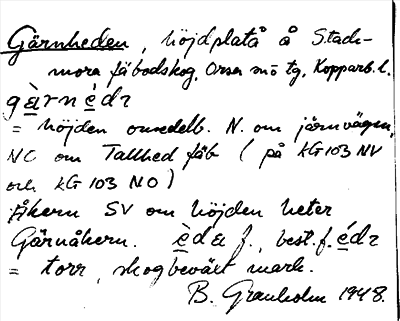 Gärnheden, höjdplatå å Stack-
mora fäbodskog, Orsa sn o tg, Kopparb. l.
gärnèdı
= höjden omedelb. N. om järnvägen,
NO om Tallhed fäb (på KG 103 NV
och KG 103 NO)
åkern SV om höjden heter
Gärnåkern. èda f., best. f. édı
= torr, skogbeväxt mark.
B. Granholm 1948.